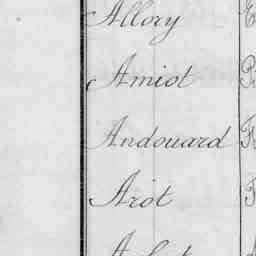 Allory
Amiot
Andouard
Arot